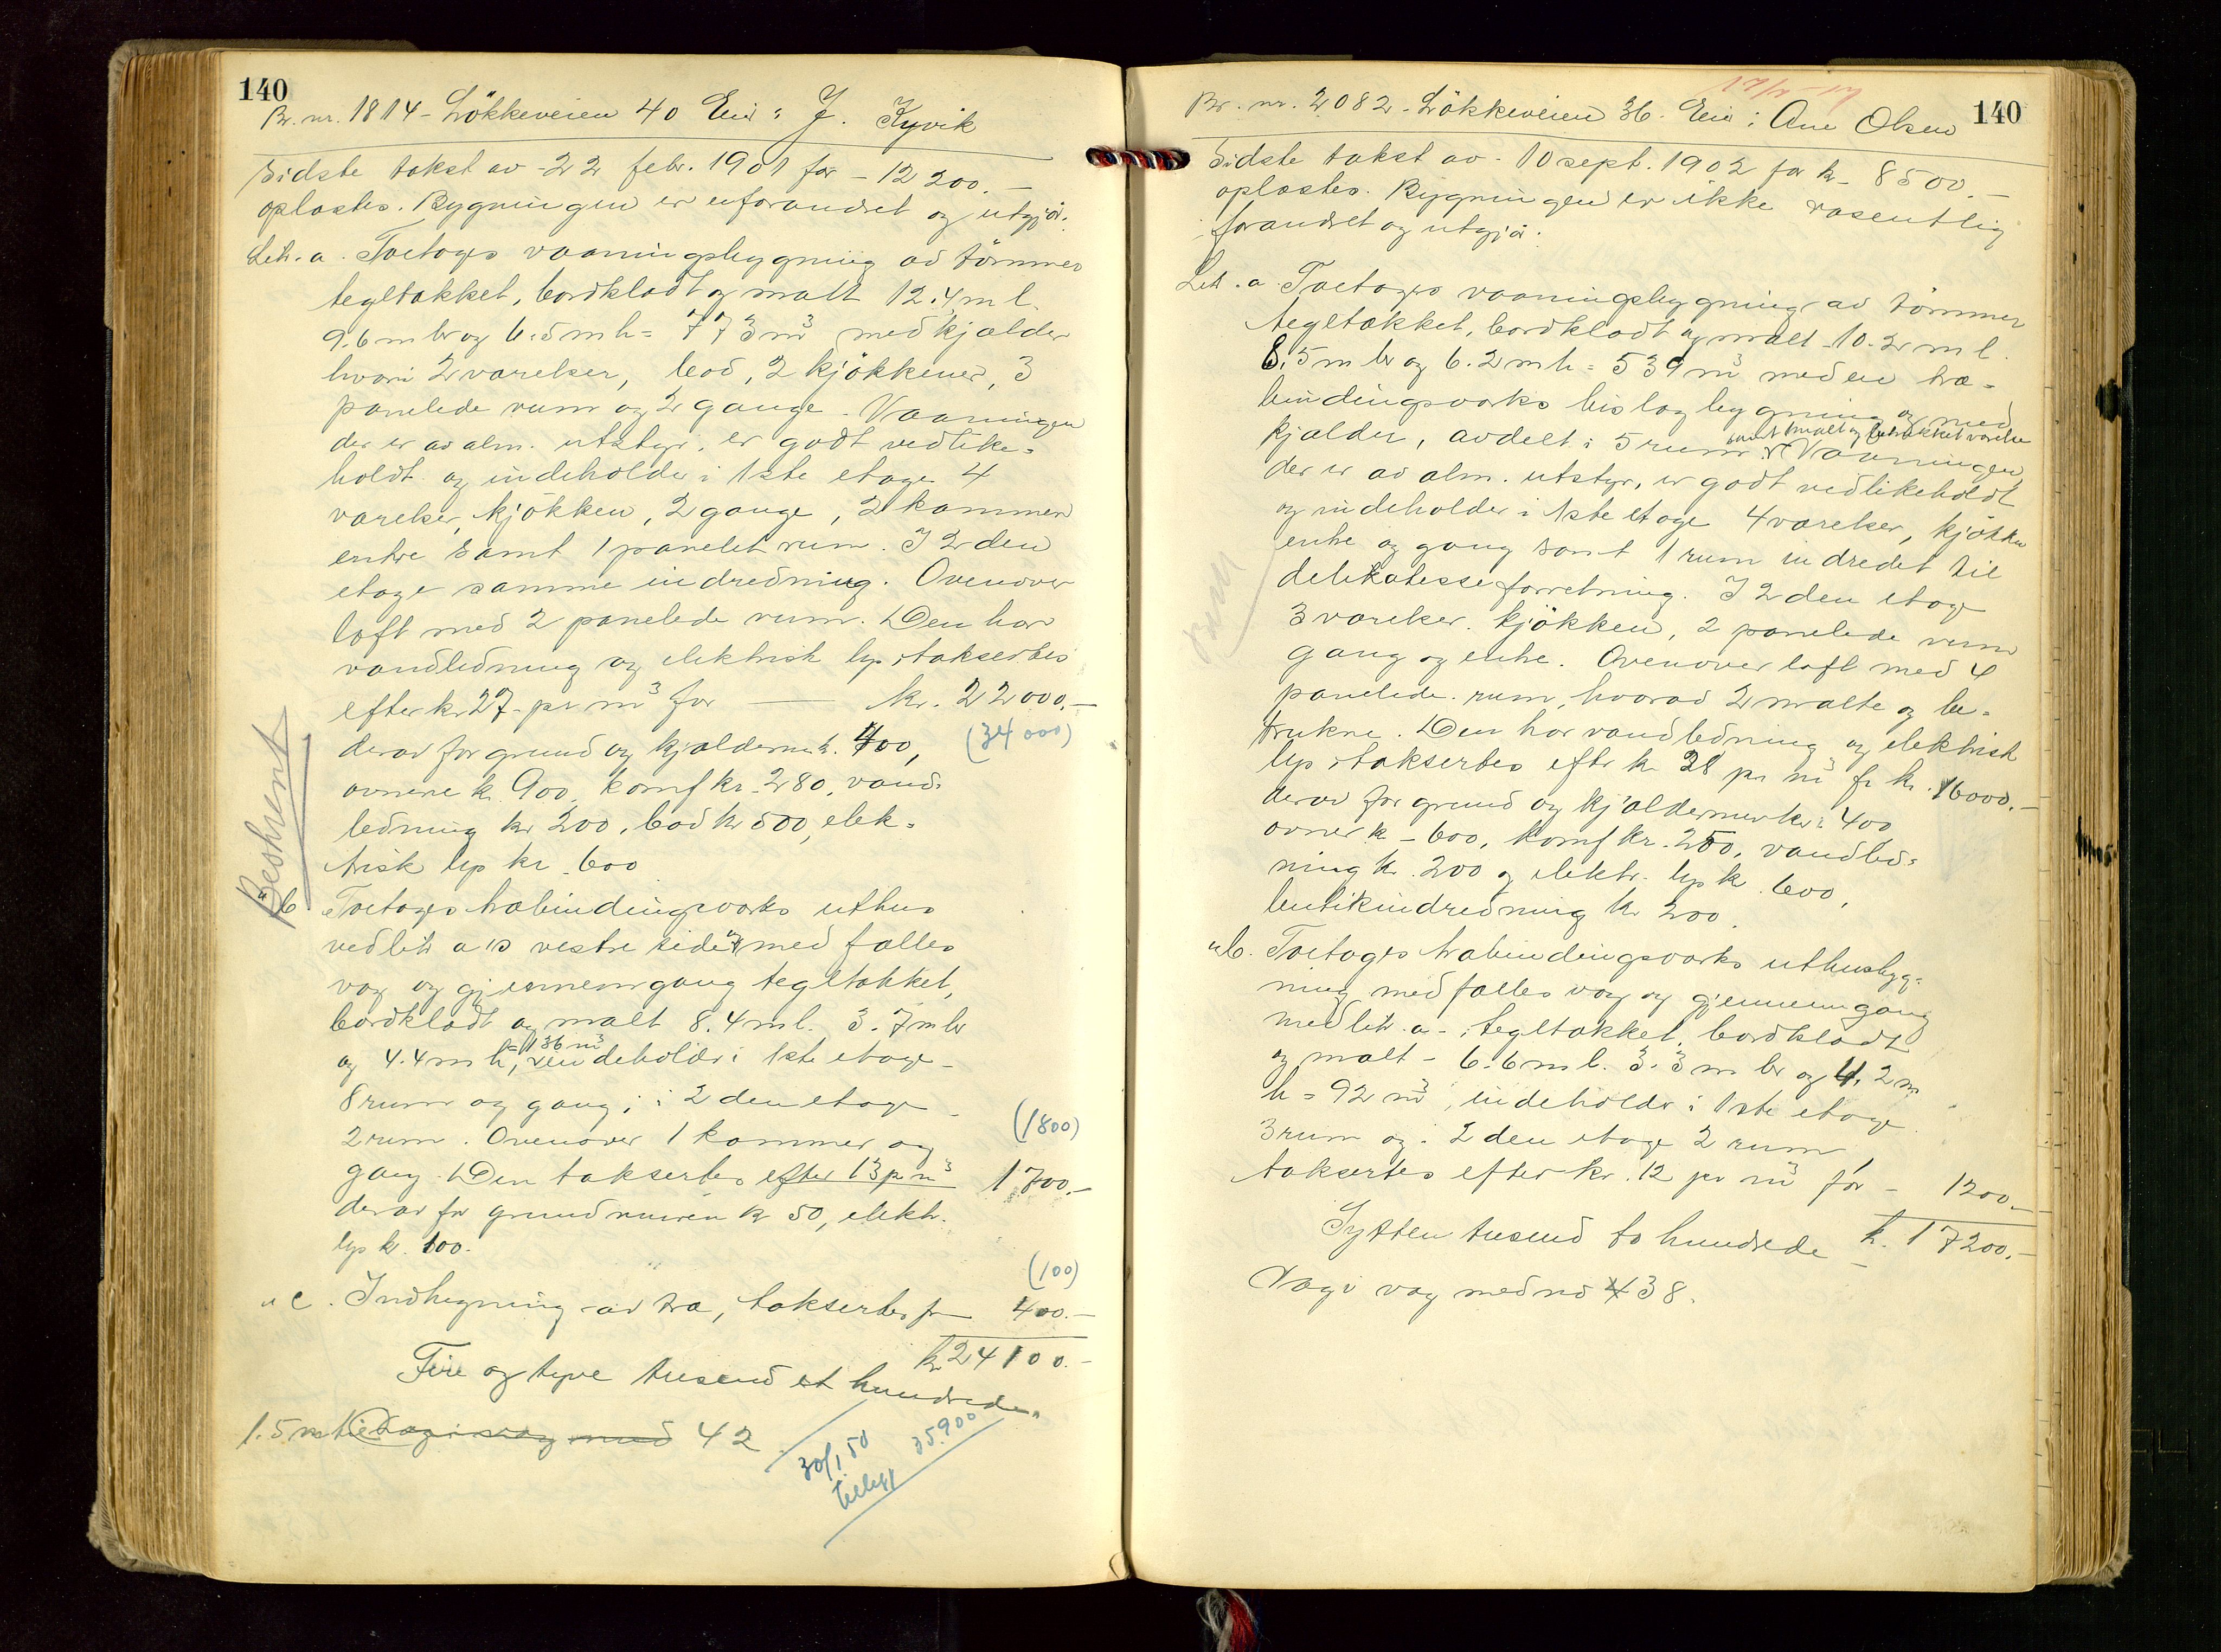 140
Br. nr. 1814 - Lökkeveien 40 Eier: J. Kyvik
Sidste takst av 22 febr. 1901 for - 12200.-
oplæstes. Bygningen er uforandret og utgjör:
Litr. a. Toetages vaaningsbygning av tömmer
tegltækket, bordklædt og malt 12.4 m l.
9.6 m br og 6.5 m h = 773 m³ med kjælder
hvori 2 værelser, bod, 2 kjökkener, 3
panelede rum og 2 gange. Vaaningen
der er av alm. utstyr, er godt vedlike-
holdt og indeholder i 1ste etage 4
værelser, kjökken, 2 gange, 2 kammer
entre samt 1 panelet rum. I 2den
etage samme indredning. Ovenover
loft med 2 panelede rum. Den har
vandledning og elektrisk lys, takseres
efter kr 27 pr m³ for — kr. 22000.-
derav for grund og kjældermur kr. 400, (34000)
ovnene kr. 900, komf kr. 280, vand-
ledning kr 200, bad kr 500, elek-
trisk lys kr 600
Beskrent
" b. Toetages træbindingsværks uthus
ved litr a's vestre side med fælles
væg og gjennemgang tegltækket,
bordklædt og malt 8.4 m l. 3.7 m br
og 4.4 m h = 136 m³, indeholder i 1ste etage
8 rum og gang, i 2den etage
2 rum. Ovenover 1 kammer og (1800)
gang. Den takseres efter 13 pr m³ 1700.-
derav for grundmuren kr 50, elektr.
lys kr. 100.
(100)
" c. Indhegning av træ, takseres for 400.-
kr 24100.-
Fire og tyve tusend et hundrede.
1.5 m til Dagi væg med 42
30/1 50 35.900
tillegg
17/2-17
140
Br. nr. 2082 - Lökkeveien 36. Eier: Ane Olsen
Sidste takst av 10 sept. 1902 for kr 8500.-
oplæstes. Bygningen er ikke væsentlig
forandret og utgjör:
Litr. a. Toetages vaaningsbygning av tömmer
tegltækket, bordklædt og malt 10.2 m l.
8.5 m br og 6.2 m h = 539 m³ med en træ-
bindingsværks bislagbygning og med
kjælder, avdelt i 5 rum samt 1 malt og betrukket værelse Vaaningen
der er av alm. utstyr, er godt vedlikeholdt
og indeholder i 1ste etage 4 værelser, kjökken
entre og gang samt 1 rum indredet til
delikatesseforretning. I 2den etage
3 værelser, kjökken, 2 panelede rum
gang og entre. Ovenover loft med 4
panelede rum, hvorav 2 malte og be-
trukne. Den har vandledning og elektrisk
lys, takseres efter kr 28 pr m³ for kr. 16000.-
derav for grund og kjældermur kr. 400
ovner kr 600, komf kr. 250, vandled-
ning kr. 200 og elektr. lys kr. 600,
butikindredning kr 200.
" b. Toetages træbindingsværks uthusbyg-
ning med fælles væg og gjennemgang
med litr. a, tegltækket, bordklædt
og malt - 6.6 m l. 3.3 m br og 4.2 m
h = 92 m³, indeholder i 1ste etage
3 rum og i 2den etage 2 rum
takseres efter kr. 12 pr m³ for - 1200.-
Sytten tusend to hundrede kr. 17200.-
Dagi væg med no 38.